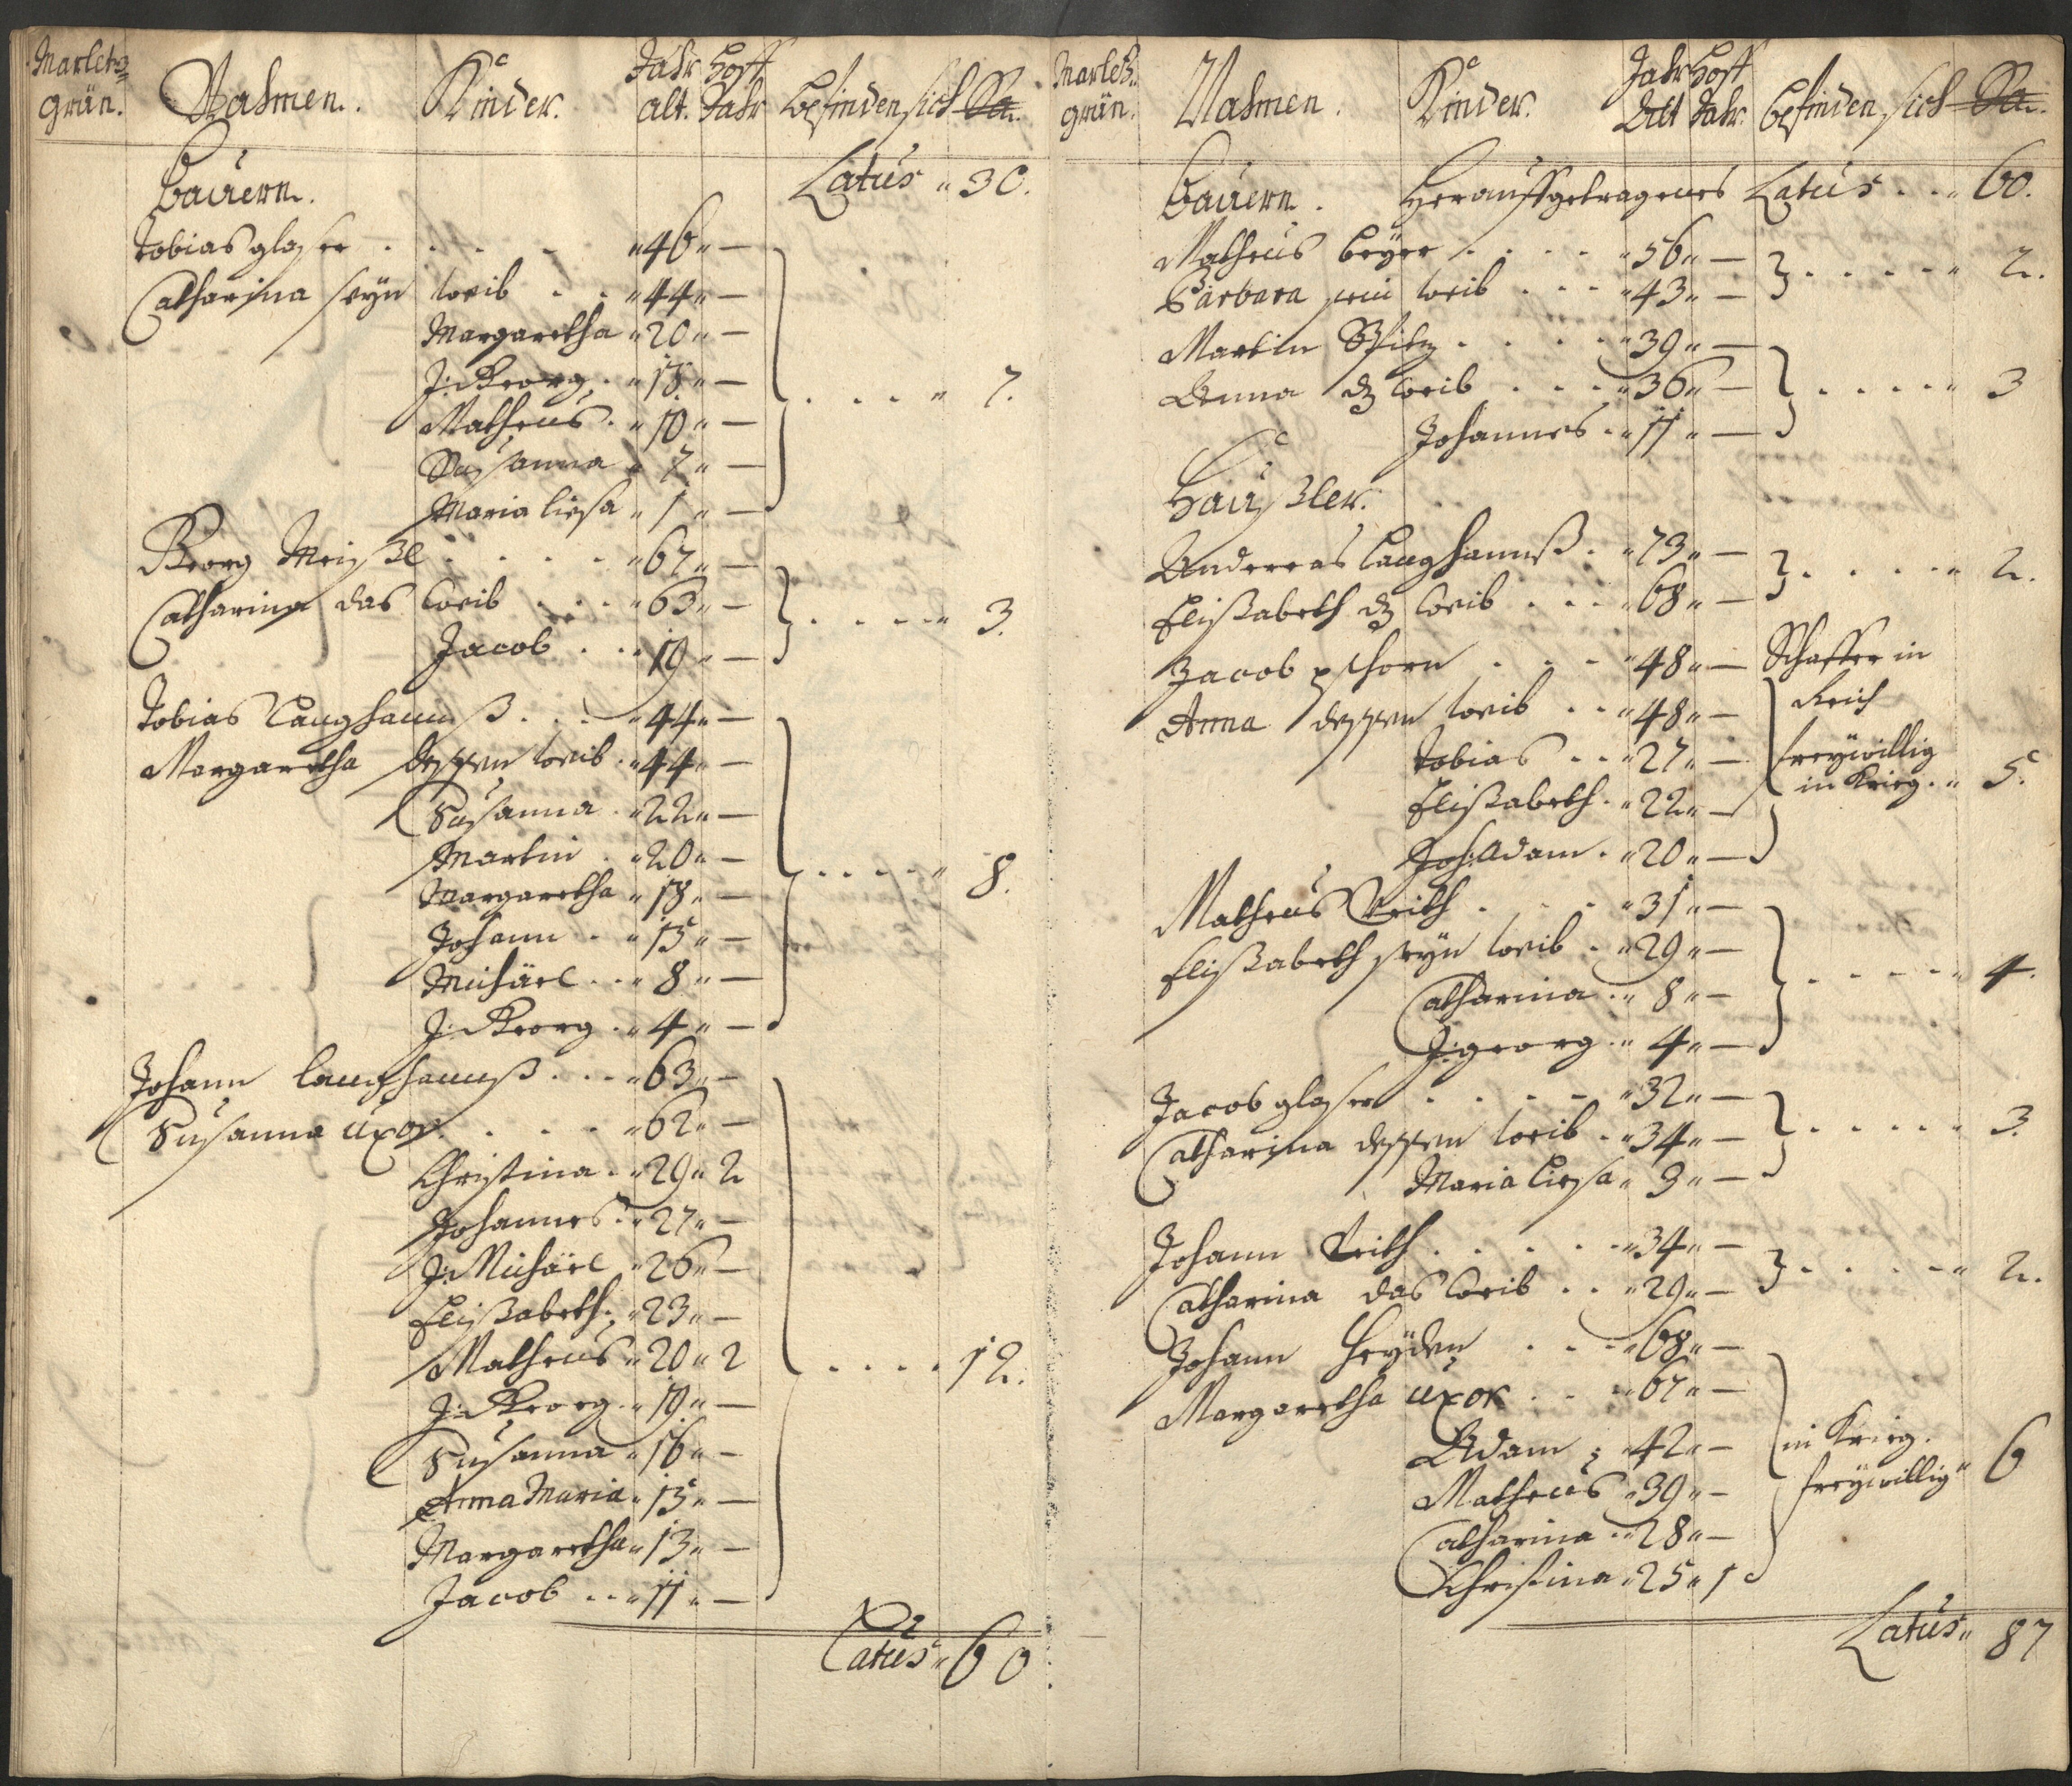 Marlets=
grün. Nahmen. Kinder. Jahr alt. Hoff Jahr befinden sich Sa.
Bauern. Latus " 30.
Tobias glaser . . . . " 46 " —
Catharina seyn weib . . " 44 " —
Margaretha " 20 " —
J: Georg . " 18 " —
Matheus . " 10 " — . . . . " 7.
Susanna " 7 " —
Maria liesa " 1 " —
Georg Meißl . . . . " 67 " —
Catharina das weib . . . " 63 " — . . . . " 3.
Jacob . . " 19 " —
Tobias Langhannß . . . " 44 " —
Margaretha dessen weib . " 44 " —
Susanna . " 22 " —
Martin . " 20 " — . . . . " 8.
Margaretha " 18 " —
Johann . " 15 " —
Michäel . . " 8 " —
J: Georg . " 4 " —
Johann langhannß . . . " 63 " —
Susanna uxor . . . . " 62 " —
Christina . " 29 " 2
Johannes . " 27 " —
J: Michäel " 26 " —
Elißabeth . " 23 " —
Matheus " 20 " 2 . . . . 12.
J: Georg . " 19 " —
Susanna " 16 " —
Anna Maria " 15 " —
Margaretha " 13 " —
Jacob . . " 11 " —
Latus " 60
Marlets=
grün. Nahmen. Kinder. Jahr Alt Hoff Jahr. befinden sich Sa.
Bauern. Herauffgetragenes Latus . . " 60.
Matheus beyer . . . . " 56 " —
Barbara sein weib . . . " 43 " — . . . . " 2.
Martin Spitz . . . . " 39 " —
Anna dz weib . . . . " 36 " — . . . . " 3
Johannes . " 11 " —
Häußler.
Andereas Langhannß . " 73 " —
Elißabeth dz weib . . . " 68 " — . . . . " 2.
Jacob pschorn . . . " 48 " — Schaffer in
Anna dessen weib . . " 48 " — Reich
Tobias . . " 27 " — freywillig
Elißabeth . " 22 " — in Krieg. " 5.
Joh: Adam . " 20 " —
Matheus Veith . . . " 31 " —
Elißabeth seyn weib . " 29 " —
Catharina . " 8 " — . . . . " 4.
J: georg . " 4 " —
Jacob glaser . . . . " 32 " —
Catharina dessen weib . " 34 " — . . . . " 3.
Maria Liesa " 3 " —
Johann Veith . . . . " 34 " —
Catharina das weib . . " 29 " — . . . . " 2.
Johann Heyden . . . " 68 " —
Margaretha uxor . . " 67 " —
Adam " 42 " — in Krieg.
Matheus " 39 " — freywillig " 6
Catharina . " 28 " —
Christina " 25 " 1
Latus " 87